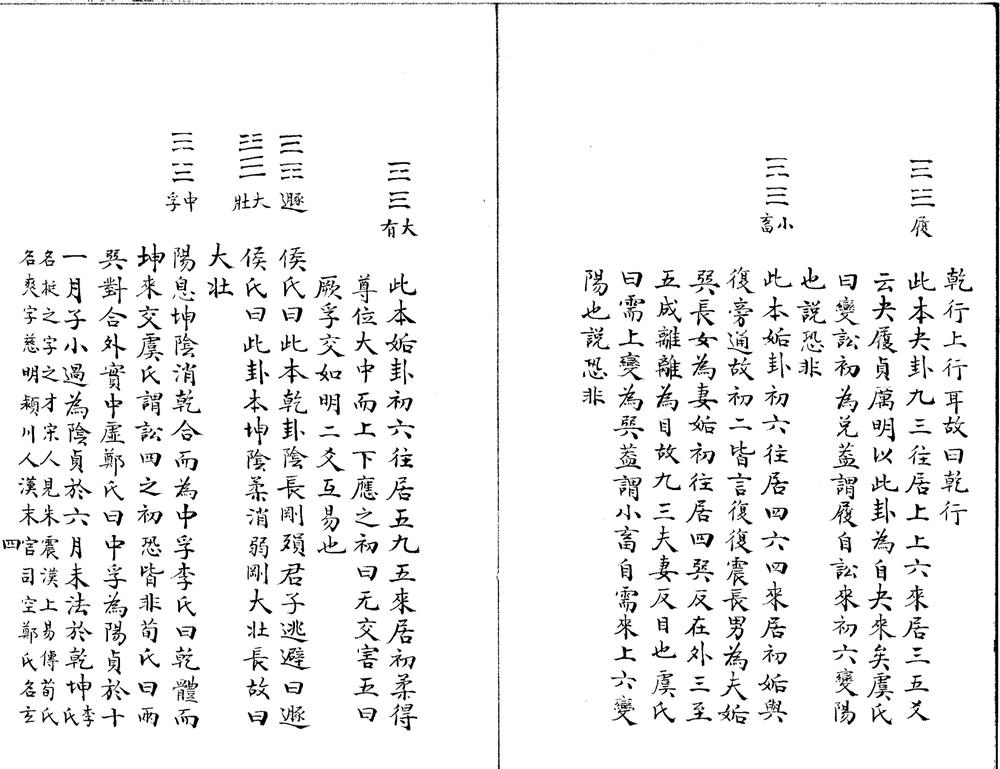 乾行上行耳故曰乾行
䷉履
此本夬卦九三往居上上六來居三五爻
云夬履貞厲明以此卦為自夬來矣虞氏
曰變訟初為兌蓋謂履自訟來初六變陽
也說恐非
䷈小畜
此本姤卦初六往居四六四來居初姤與
復旁通故初二皆言復復震長男為夫姤
巽長女為妻姤初往居四巽反在外三至
五成離離為目故九三夫妻反目也虞氏
曰需上變為巽蓋謂小畜自需來上六變
陽也說恐非
䷍大有
此本姤卦初六往居五九五來居初柔得
尊位大中而上下應之初曰无交害五曰
厥孚交如明二爻互易也
䷠遯
侯氏曰此本乾卦陰長剛殞君子逃避曰遯
䷡大壯
侯氏曰此卦本坤陰柔消弱剛大壯長故曰
大壯
䷼中孚
陽息坤陰消乾合而為中孚李氏曰乾體而
坤來交虞氏謂訟四之初恐皆非荀氏曰兩
巽對合外實中虛鄭氏曰中孚為陽貞於十
一月子小過為陰貞於六月未法於乾坤李氏
名挺之字之才宋人見朱震漢上易傳荀氏
名爽字慈明潁川人漢末官司空鄭氏名玄
四